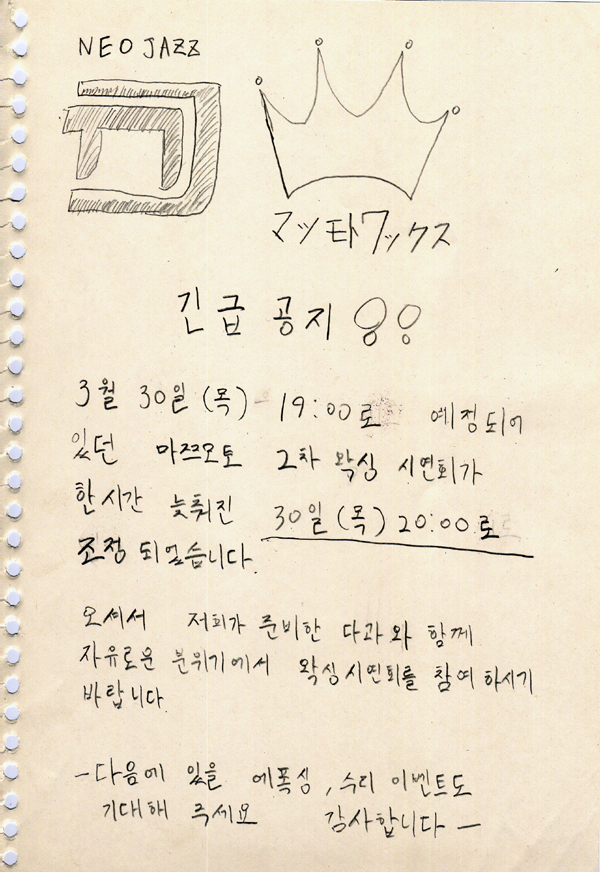 NEO JAZZ
マツモトワックス
긴급 공지 !!
3월 30일 (목) 19:00로 예정되어
있던 마쯔모토 2차 왁싱 시연회가
한시간 늦춰진 30일(목) 20:00로
조정 되었습니다.
오셔서 저희가 준비한 다과와 함께
자유로운 분위기에서 왁싱시연회를 참여하시기
바랍니다.
-다음에 있을 에폭싱, 수리 이벤트도
기대해 주세요 감사합니다-